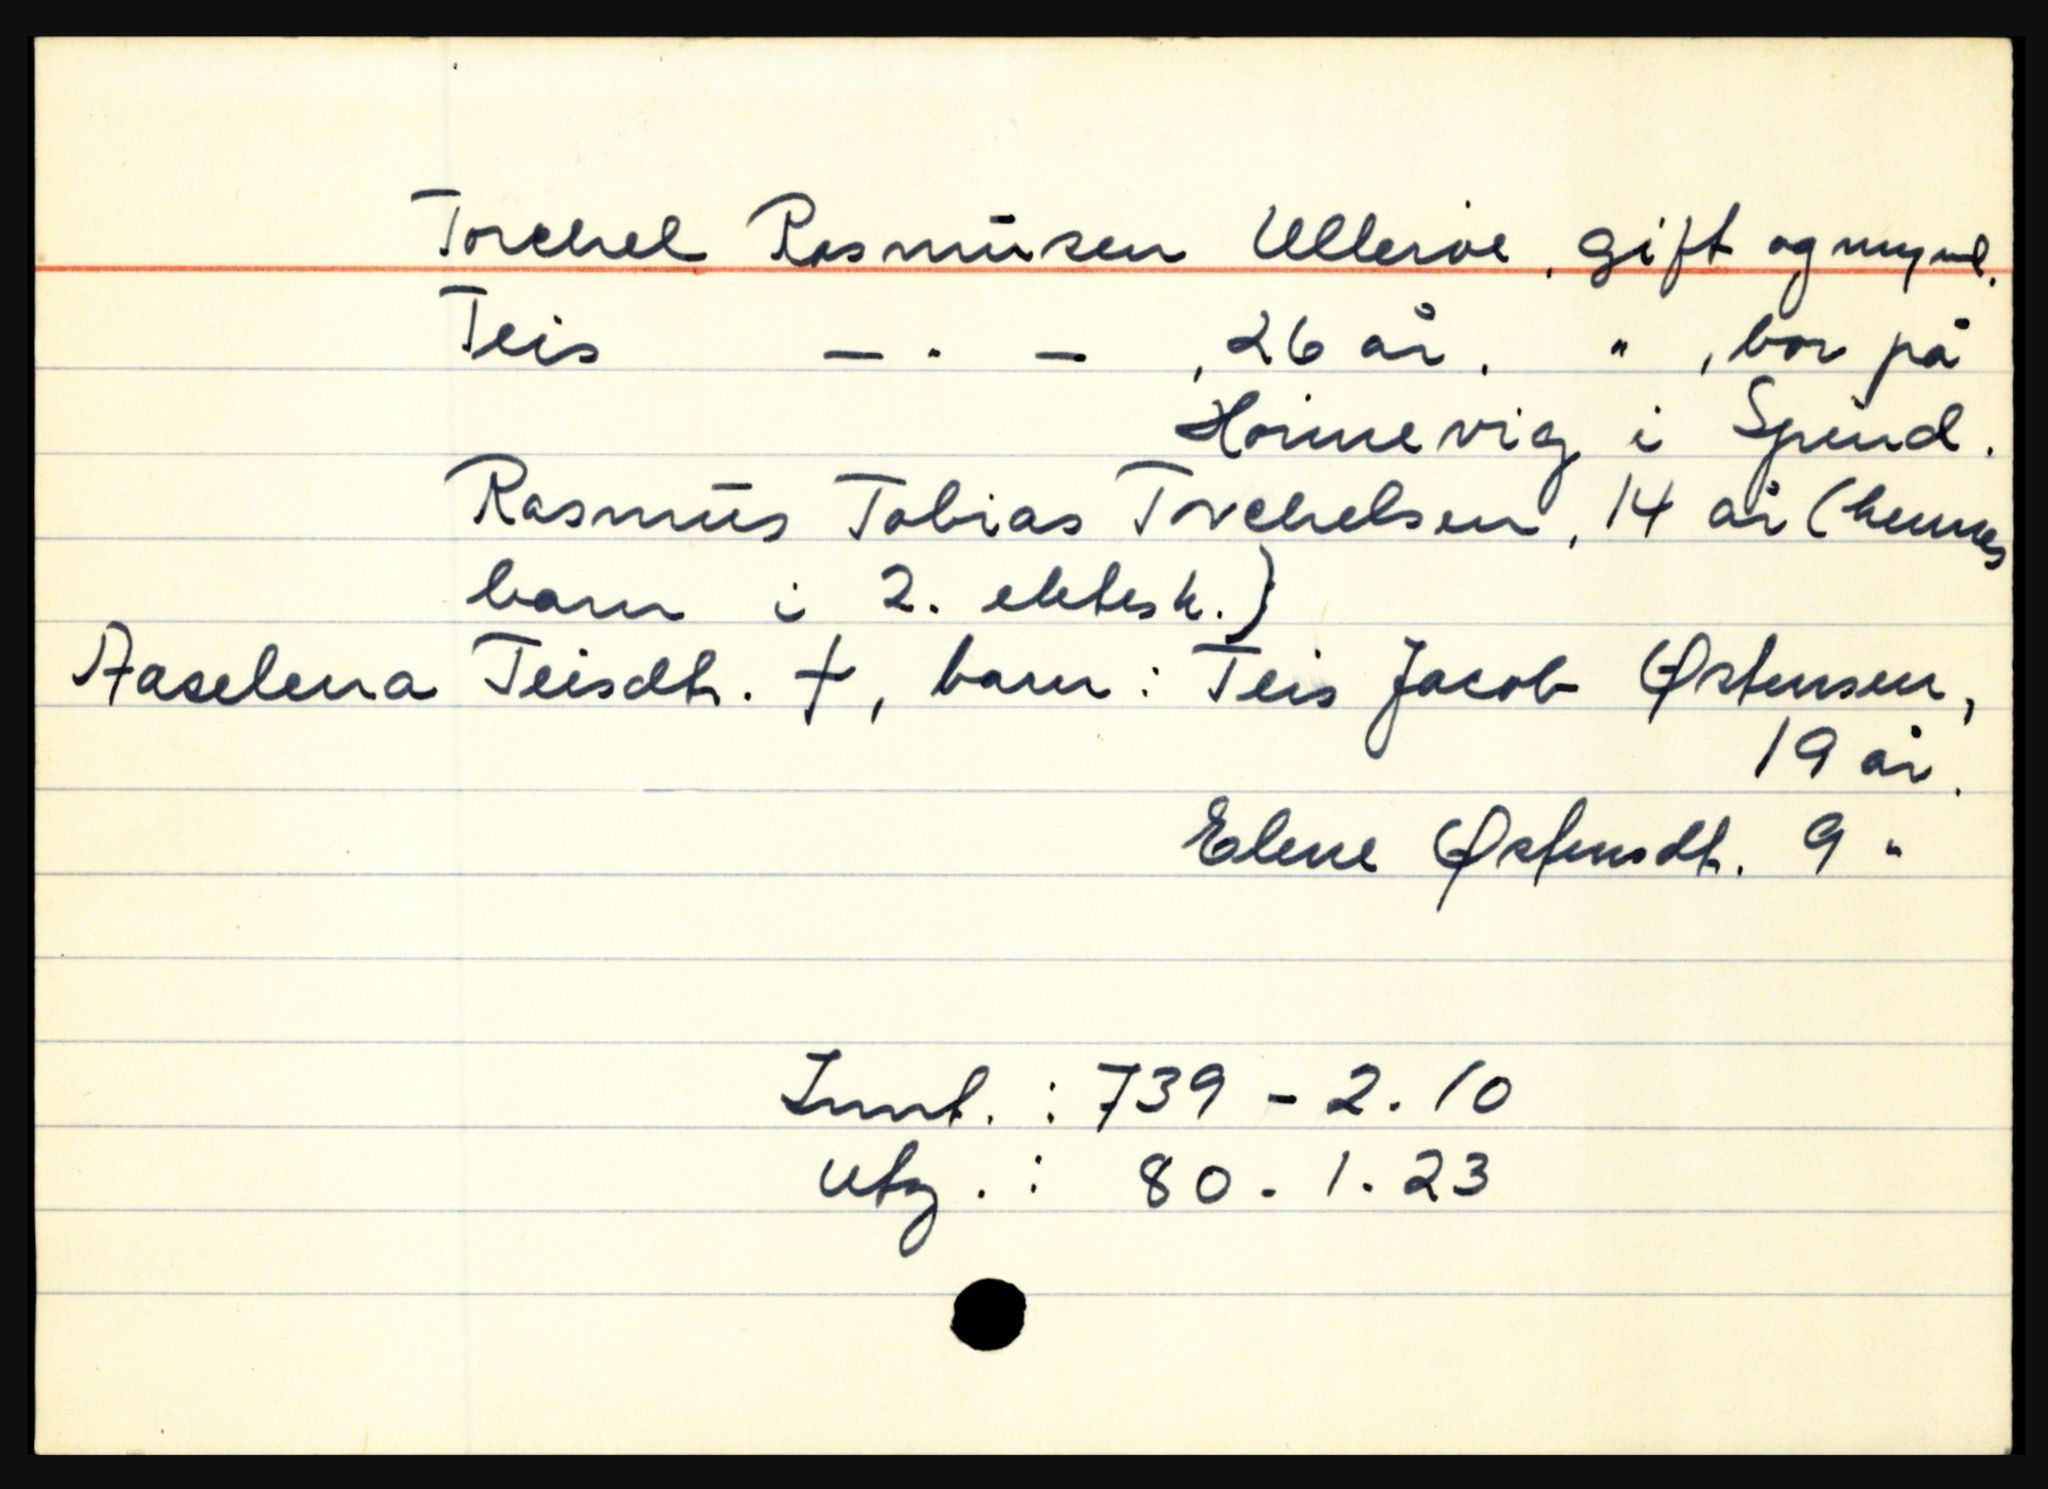 Torchel Rasmusen Ullerøe, gift og mynd.
Teis — " — , 26 år, " , bor på
Hoinnevig i Spind.
Rasmus Tobias Torchelsen, 14 år (hennes
barn i 2. ektesk.)
Aaselena Teisdtr. †, barn: Teis Jacob Østensen,
19 år.
Elene Østensdtr. 9 "
Innt. : 739 - 2. 10
Utg. : 80 - 1. 23